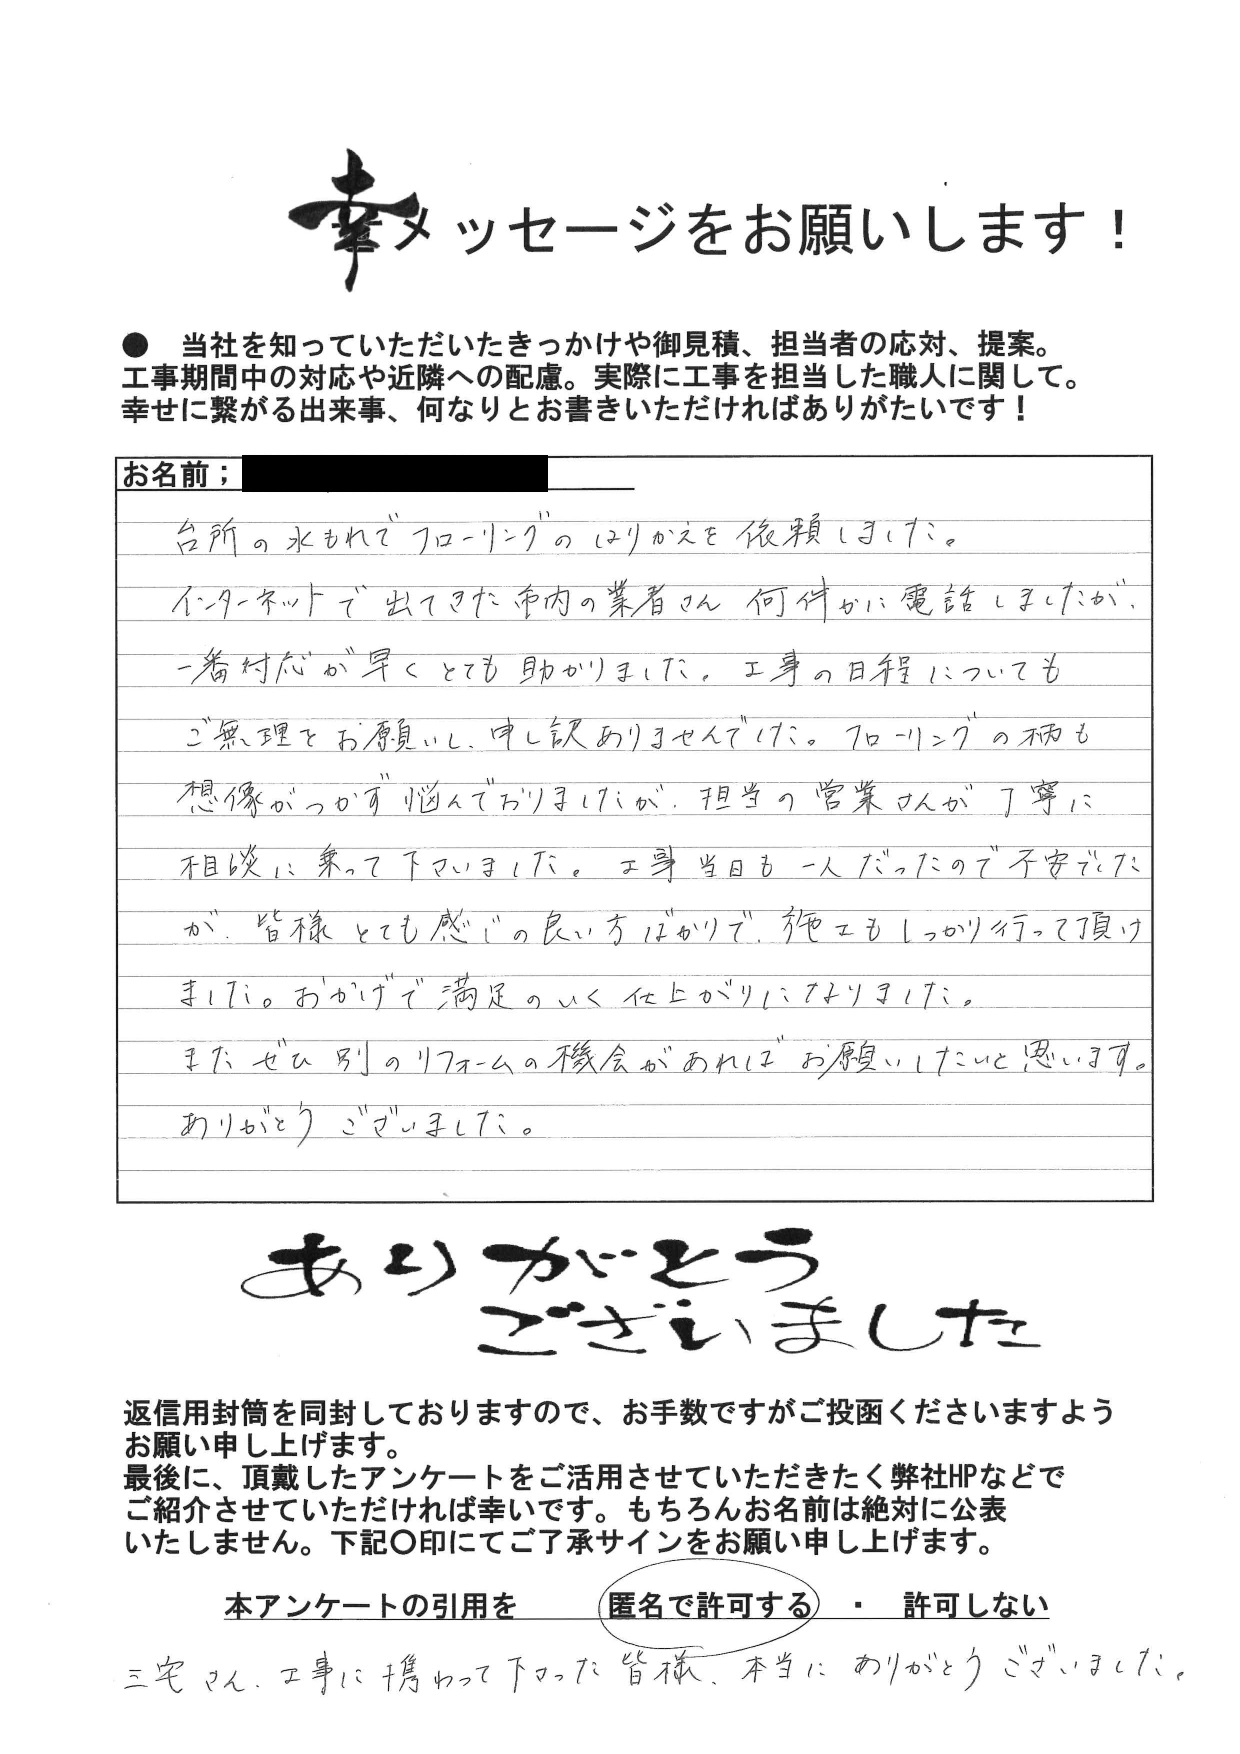 幸メッセージをお願いします！
● 当社を知っていただいたきっかけや御見積、担当者の応対、提案。
工事期間中の対応や近隣への配慮。実際に工事を担当した職人に関して。
幸せに繋がる出来事、何なりとお書きいただければありがたいです！
お名前；
台所の水もれでフローリングのはりかえを依頼しました。
インターネットで出てきた市内の業者さん何件かに電話しましたが、
一番対応が早くとても助かりました。工事の日程についても
ご無理をお願いし、申し訳ありませんでした。フローリングの柄も
想像がつかず悩んでおりましたが、担当の営業さんが丁寧に
相談に乗って下さいました。工事当日も一人だったので不安でした
が、皆様とても感じの良い方ばかりで、施工もしっかり行って頂け
ました。おかげで満足のいく仕上がりになりました。
またぜひ別のリフォームの機会があればお願いしたいと思います。
ありがとうございました。
ありがとう
ございました
返信用封筒を同封しておりますので、お手数ですがご投函くださいますよう
お願い申し上げます。
最後に、頂戴したアンケートをご活用させていただきたく弊社HPなどで
ご紹介させていただければ幸いです。もちろんお名前は絶対に公表
いたしません。下記〇印にてご了承サインをお願い申し上げます。
本アンケートの引用を 匿名で許可する ・ 許可しない
三宅さん、工事に携わって下さった皆様、本当にありがとうございました。